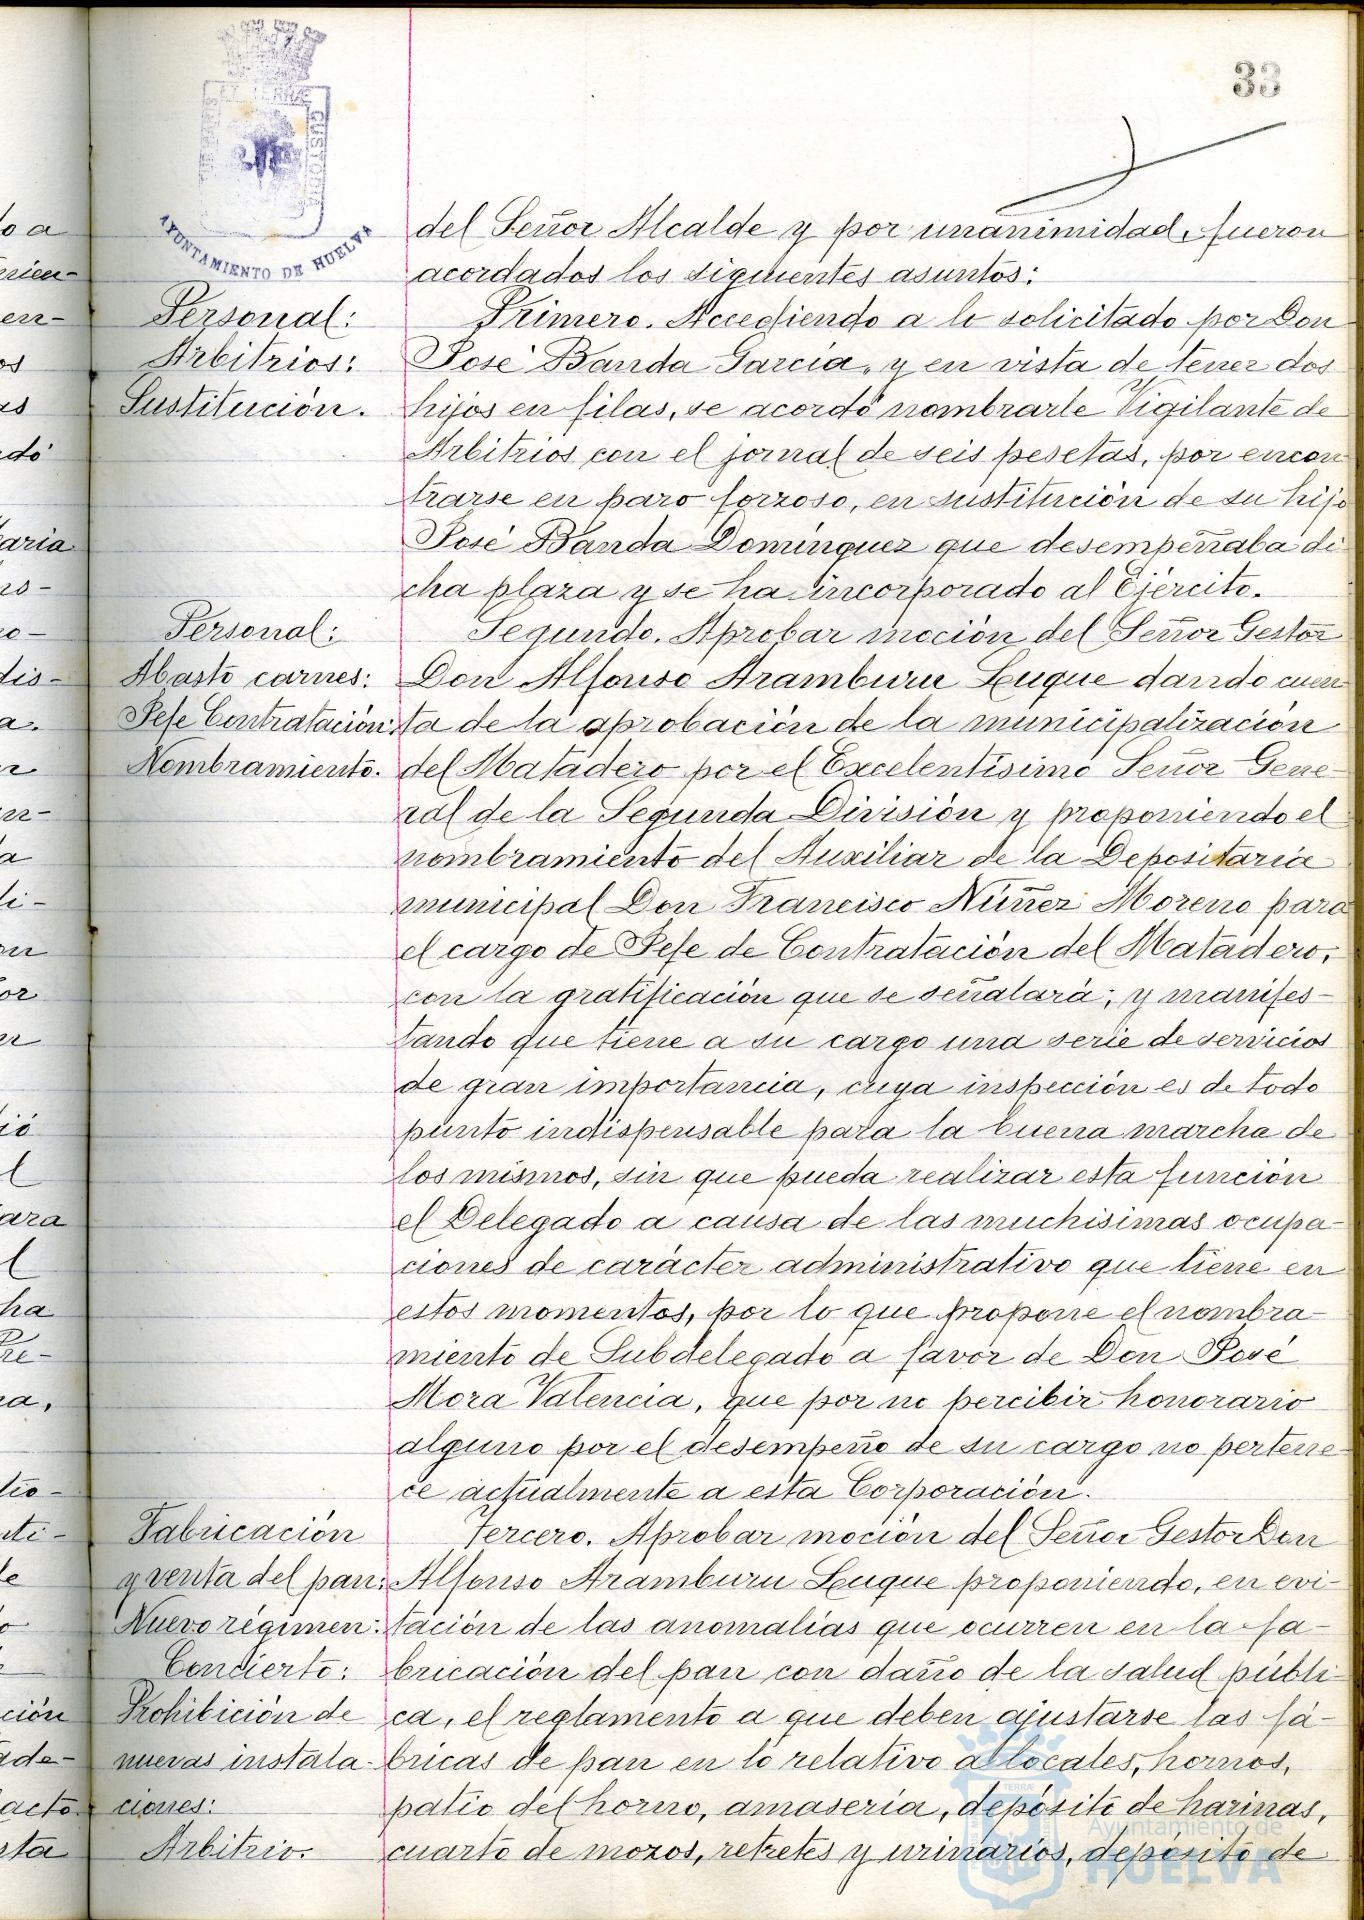 33
PORTUS MARIS ET TERRÆ CUSTODIA
AYUNTAMIENTO DE HUELVA
del Señor Alcalde y por unanimidad, fueron
acordados los siguientes asuntos:
Personal:
Arbitrios:
Sustitución.
Primero. Accediendo a lo solicitado por Don
José Banda García, y en vista de tener dos
hijos en filas, se acordó nombrarle Vigilante de
Arbitrios con el jornal de seis pesetas, por encon
trarse en paro forzoso, en sustitución de su hijo
José Banda Domínguez que desempeñaba di
cha plaza y se ha incorporado al Ejército.
Personal:
Abasto carnes:
Jefe Contratación:
Nombramiento.
Segundo. Aprobar moción del Señor Gestor
Don Alfonso Aramburu Luque dando cuen
ta de la aprobación de la municipalización
del Matadero por el Excelentísimo Señor Gene-
ral de la Segunda División y proponiendo el
nombramiento del Auxiliar de la Depositaría
municipal Don Francisco Núñez Moreno para
el cargo de Jefe de Contratación del Matadero,
con la gratificación que se señalará; y manifes-
tando que tiene a su cargo una serie de servicios
de gran importancia, cuya inspección es de todo
punto indispensable para la buena marcha de
los mismos, sin que pueda realizar esta función
el Delegado a causa de las muchísimas ocupa-
ciones de carácter administrativo que tiene en
estos momentos, por lo que propone el nombra-
miento de Subdelegado a favor de Don José
Mora Valencia, que por no percibir honorario
alguno por el desempeño de su cargo no pertene-
ce actualmente a esta Corporación.
Fabricación
y venta del pan:
Nuevo régimen:
Concierto:
Prohibición de
nuevas instala-
ciones:
Arbitrio.
Tercero. Aprobar moción del Señor Gestor Don
Alfonso Aramburu Luque proponiendo, en evi-
tación de las anomalías que ocurren en la fa-
bricación del pan con daño de la salud públi
ca, el reglamento a que deben ajustarse las fá-
bricas de pan en lo relativo a locales, hornos,
patio del horno, amasería, depósito de harinas,
cuarto de mozos, retretes y urinarios, depósito de
Ayuntamiento de
HUELVA